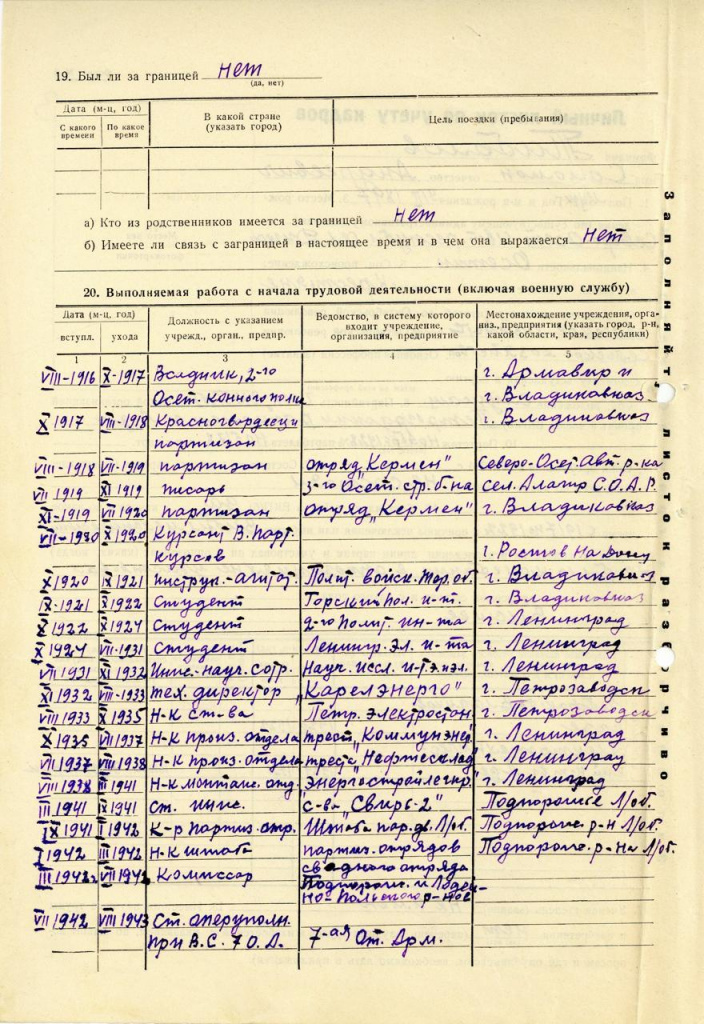 19. Был ли за границей нет
(да, нет)
Дата (м-ц, год)
С какого времени
По какое время
В какой стране
(указать город)
Цель поездки (пребывания)
а) Кто из родственников имеется за границей нет
б) Имеете ли связь с заграницей в настоящее время и в чем она выражается нет
20. Выполняемая работа с начала трудовой деятельности (включая военную службу)
Дата (м-ц, год)
вступл.
ухода
Должность с указанием
учрежд., орган., предпр.
Ведомство, в систему которого
входит учреждение,
организация, предприятие
Местонахождение учреждения, орга-
низ., предприятия (указать город, р-н,
какой области, края, республики)
1 2 3 4 5
VIII-1916 X-1917 Всадник, 2-го г. Армавир и
Осет. конного полка г. Владикавказ
X 1917 VIII-1918 Красногвардеец и г. Владикавказ
партизан
VIII-1918 VII-1919 партизан отряд „Кермен" Северо-Осет. Авт. р-ка
VII 1919 XI 1919 писарь 3-го Осет. стр. б-на сел. Алагир С.О.А.Р.
XI-1919 VII 1920 партизан отряд „Кермен" г. Владикавказ
VII-1920 X 1920 Курсант В. парт.
курсов г. Ростов на Дону
X 1920 IX 1921 инструк.-агитат. Полит. войск. Тер. об. г. Владикавказ
IX-1921 X 1922 Студент Горский пол. и-т. г. Владикавказ
X 1922 X 1924 Студент 2-го Полит. ин-та г. Ленинград
X 1924 VII-1931 Студент Ленингр. эл. и-та г. Ленинград
VII 1931 XI 1932 Инж.-науч. сотр. Науч. иссл. и-т э. и эл. г. Ленинград
XI 1932 VIII-1933 тех. директор „Карелэнерго" г. Петрозаводск
VIII 1933 X 1935 Н-к ст-ва Петр. электростан г. Петрозаводск
X 1935 VII 1937 Н-к произ. отдела трест „Коммунэнер. г. Ленинград
VII 1937 VIII 1938 Н-к произ. отдела треста „Нефтесклад" г. Ленинград
VIII 1938 III 1941 Н-к монтаж. отд. „Энергостройленгр." г. Ленинград
III 1941 IX 1941 ст. инж. с-ва „Свирь-2" Подпорожье Л/об.
IX 1941 I 1942 К-р партиз. отр. Штаба пар. дв. Л/об. Подпорож. р-н Л/об.
I 1942 III 1942 Н-к штаба партиз. отрядов Подпорож. р-на Л/об.
III 1942 VII 1942 Комиссар сводного отряда
Подпорож. и Лодей-
но-польского р-нов
VII 1942 VIII 1943 Ст. оперуполн. 7-ая
при В.С. 7 О.А. От. Арм.
Заполняйте, листок разборчиво